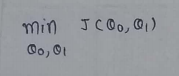 min J(θ₀,θ₁)
θ₀,θ₁